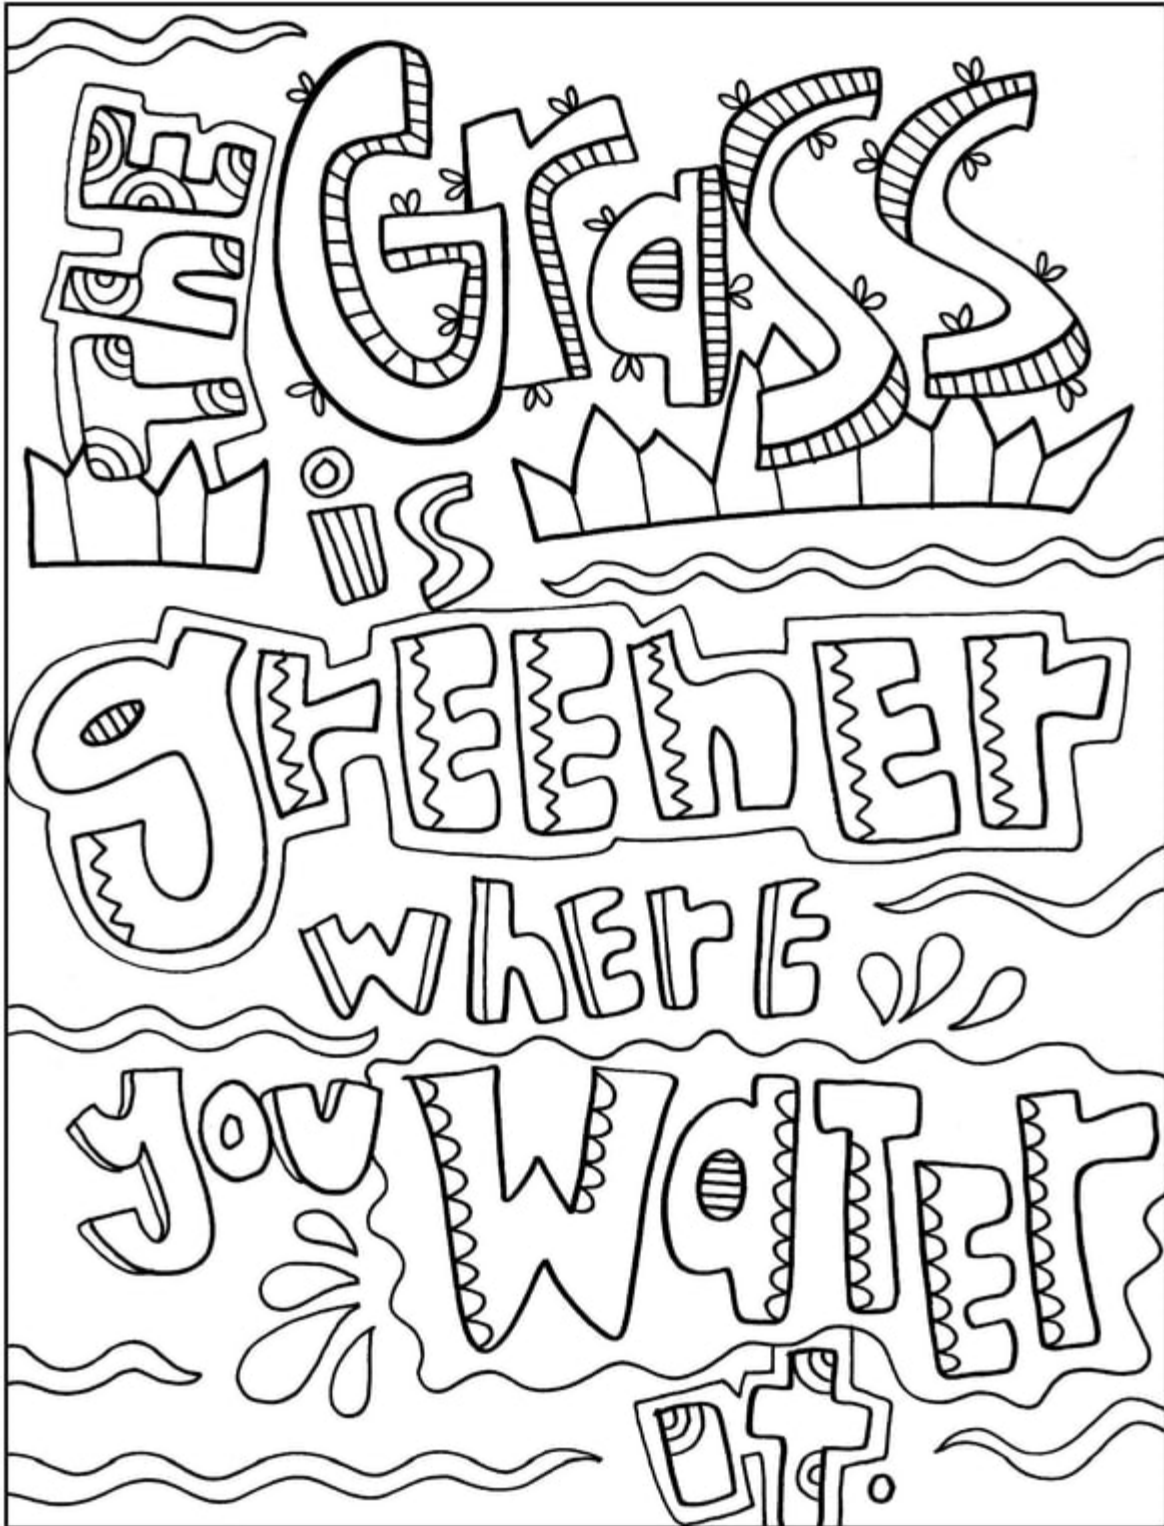 The Grass
is
greener
where
you Water
it.